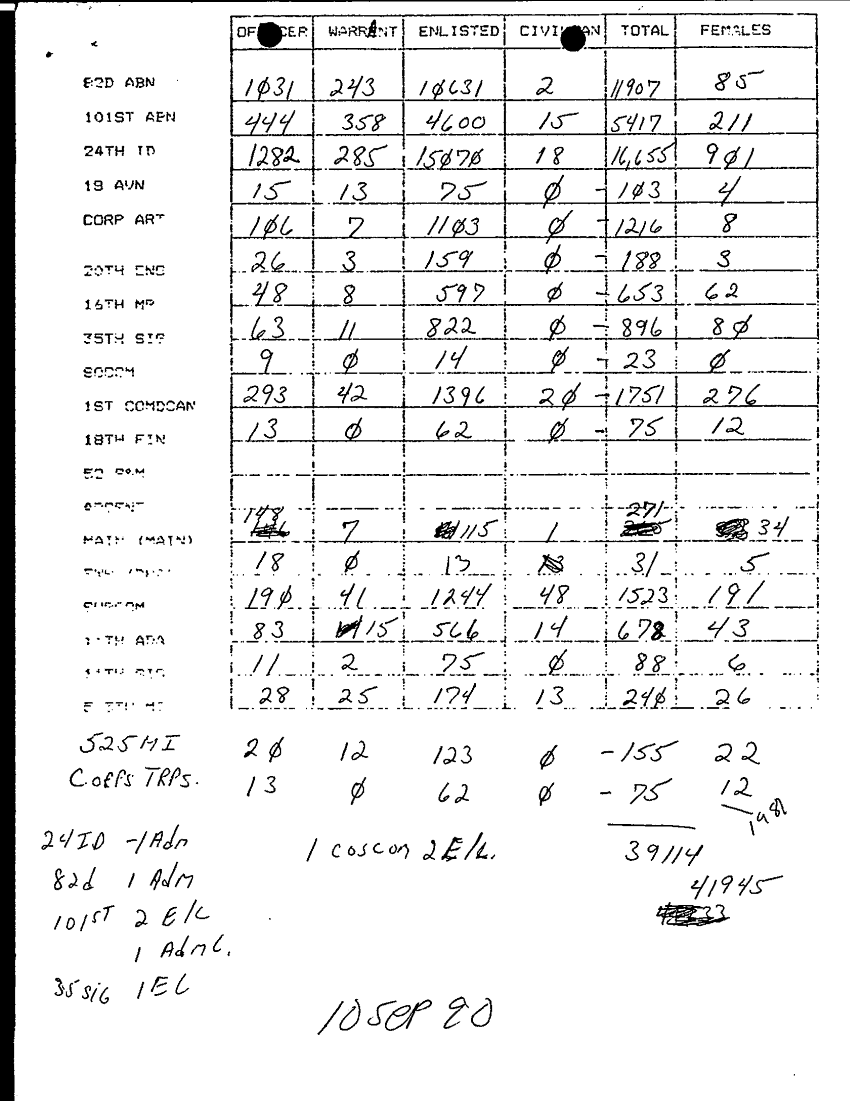 OFFICER WARRANT ENLISTED CIVILIAN TOTAL FEMALES
82D ABN 1031 243 10631 2 11907 85
101ST ABN 444 358 4600 15 5417 211
24TH ID 1282 285 15070 18 16,655 901
18 AVN 15 13 75 0 - 103 4
CORP ART 106 7 1103 0 - 1216 8
20TH ENG 26 3 159 0 - 188 3
16TH MP 48 8 597 0 - 653 62
35TH SIG 63 11 822 0 - 896 80
SOCOM 9 0 14 0 - 23 0
1ST COMDCAN 293 42 1396 20 - 1751 276
18TH FIN 13 0 62 0 - 75 12
52
148 271
MAIN (MAIN) 7 115 1 34
18 0 13 31 5
190 41 1244 48 1523 191
11TH ADA 83 15 566 14 678 43
11TH SIG 11 2 75 0 88 6
28 25 174 13 240 26
525 MI 20 12 123 0 - 155 22
Corps TRPs. 13 0 62 0 - 75 12
1981
24 ID -1 Adm 1 coscom 2 E/L. 39114
82d 1 Adm 41945
101ST 2 E/L
1 Adm L.
35 sig 1 EL
10 SEP 90